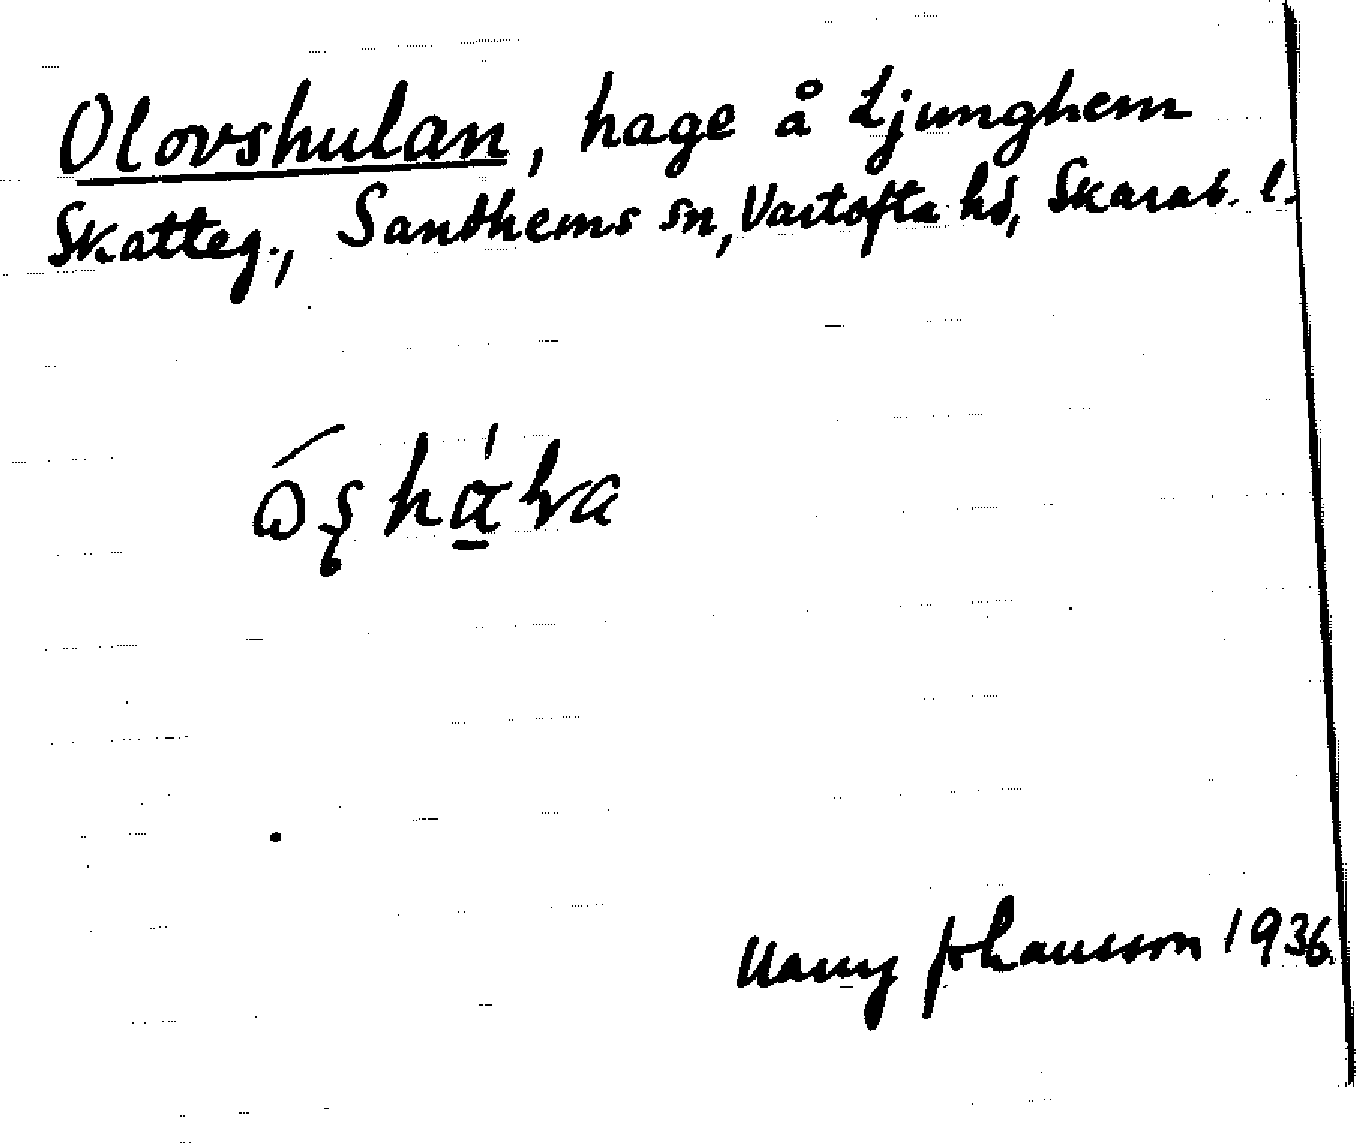 Olovshulan, hage å Ljunghem
Skatteg., Sandhems sn, Vartofta hd, Skarab. l.
Harry Johansson 1936.